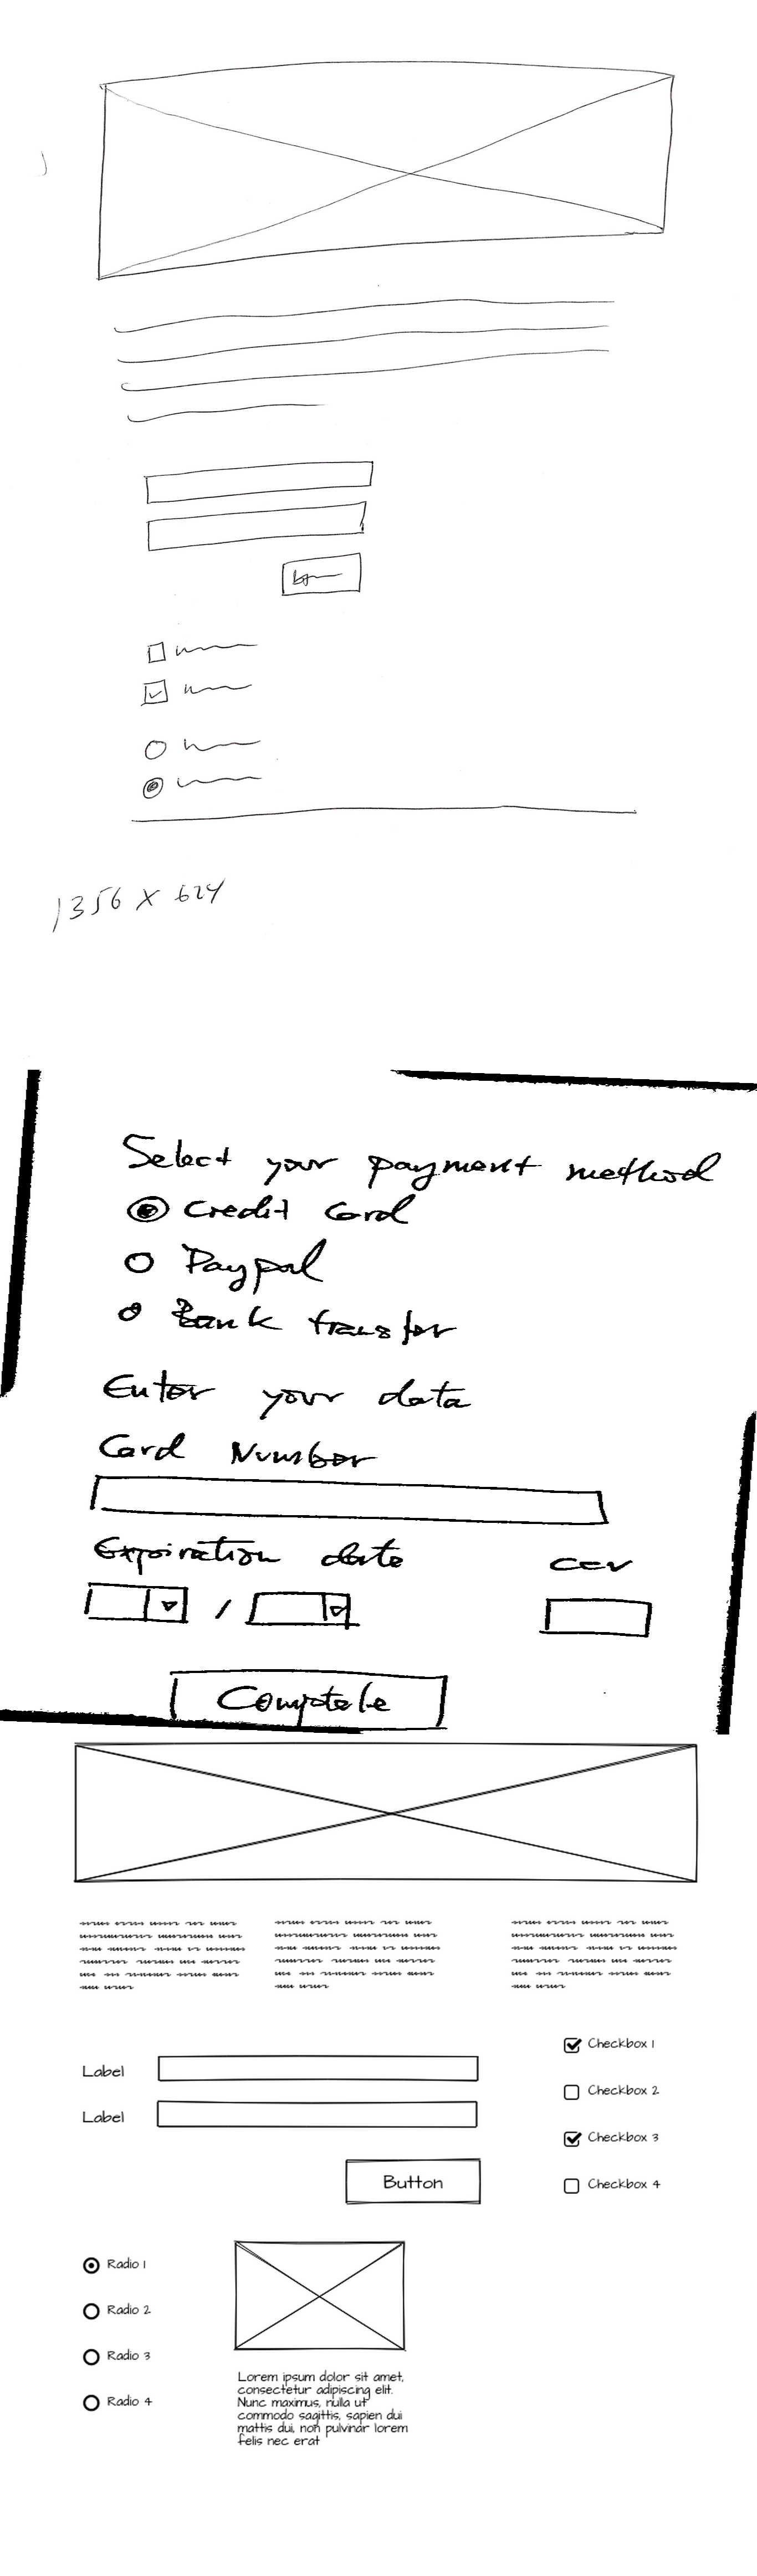 1356 x 624
Select your payment method
Credit Card
Paypal
Bank transfer
Enter your data
Card Number
Expiration date
ccv
/
Label
Label
Button
Checkbox 1
Checkbox 2
Checkbox 3
Checkbox 4
Radio 1
Radio 2
Radio 3
Radio 4
Lorem ipsum dolor sit amet,
consectetur adipiscing elit.
Nunc maximus, nulla ut
commodo sagittis, sapien dui
mattis dui, non pulvinar lorem
felis nec erat